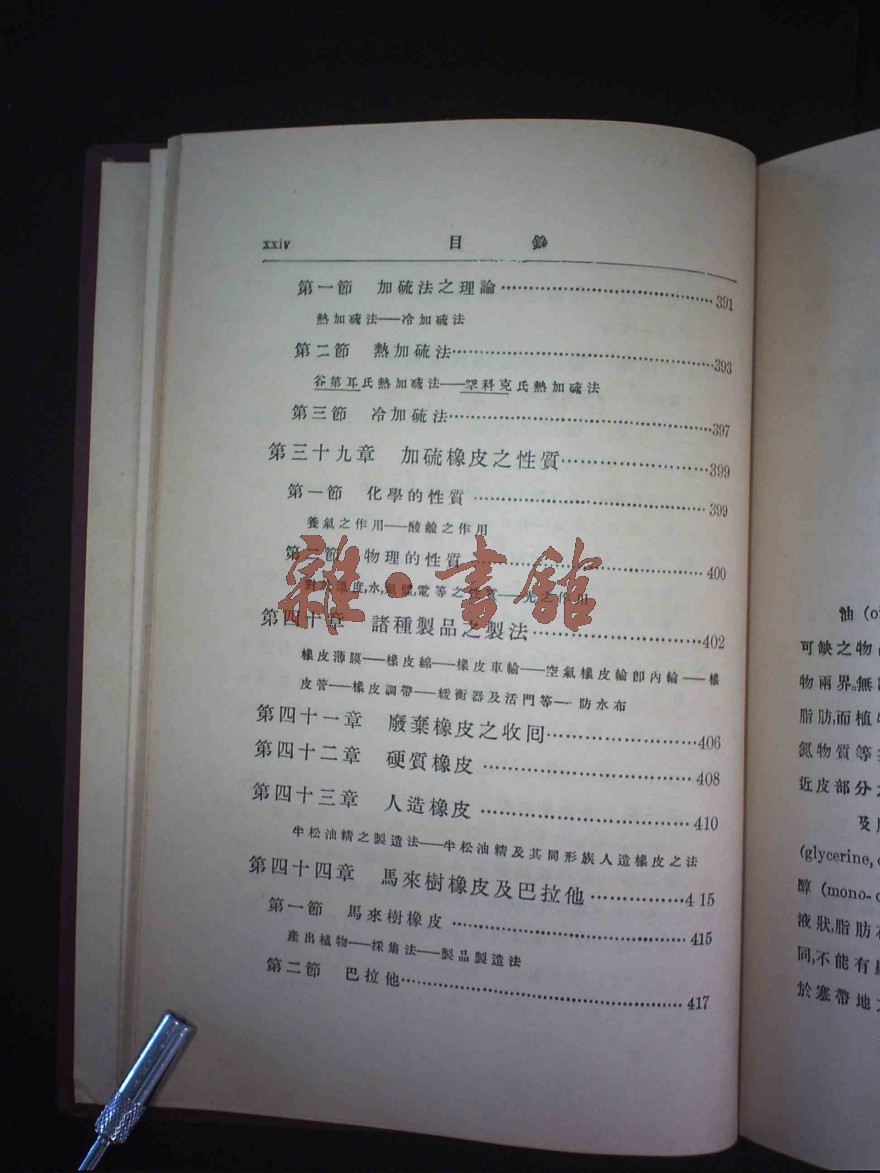 xxiv 目 錄
第一節 加硫法之理論……391
熱加硫法——冷加硫法
第二節 熱加硫法……393
谷第耳氏熱加硫法——罕科克氏熱加硫法
第三節 冷加硫法……397
第三十九章 加硫橡皮之性質……399
第一節 化學的性質……399
養氣之作用——酸鹼之作用
第二節 物理的性質……400
度,水,電等之性質——光之作用
雜·書館
第四十章 諸種製品之製法……402
橡皮薄膜——橡皮綿——橡皮車輪——空氣橡皮輪卽內輪——橡
皮管——橡皮調帶——緩衝器及活門等——防水布
第四十一章 廢棄橡皮之收囘……406
第四十二章 硬質橡皮……408
第四十三章 人造橡皮……410
牛松油精之製造法——牛松油精及其同形族人造橡皮之法
第四十四章 馬來樹橡皮及巴拉他……415
第一節 馬來樹橡皮……415
產出植物——採集法——製品製造法
第二節 巴拉他……417
油 (o
可缺之物
物兩界。無
脂肪,而植
氮物質等
近皮部分
及
(glycerine,
醇 (mono-
液狀,脂肪
同,不能有
於寒帶地